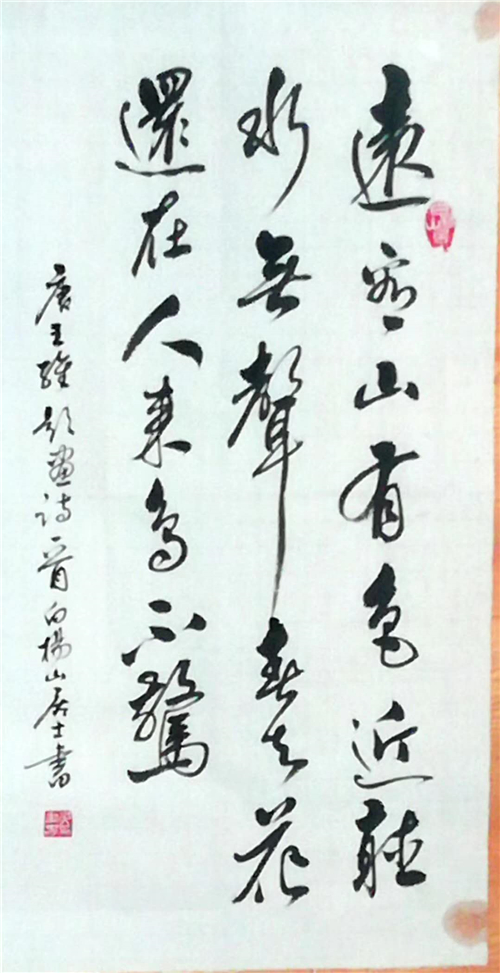 遠看山有色近聽
水無聲春去花
還在人來鳥不驚
唐王維題畫詩一首白楊山居士書